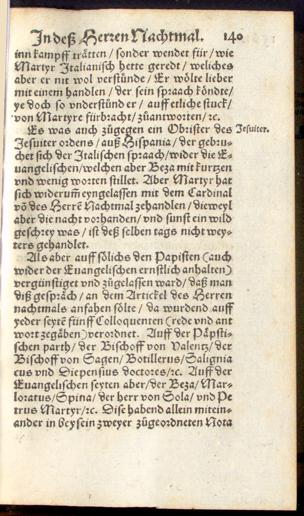 In deß Herren Nachtmal. 140
inn kampff trätten / sonder wendet für / wie
Martyr Italianisch hette geredt / weliches
aber er nit wol verstünde / Er wölte lieber
mit einem handlen / der sein spraach köndte /
ye doch so vnderstünd er / auff etliche stuck /
von Martyre fürbracht / zůantworten / ꝛc.
Es was auch zůgegen ein Obrister des Jesuiter.
Jesuiter ordens / auß Hispania / der gebru-
chet sich der Italischen spraach / wider die E-
uangelischen / welchen aber Beza mit kurtzen
vnd wenig worten stillet. Aber Martyr hat
sich widerum̃ eyngelassen mit dem Cardinal
vō des Herrē Nachtmal zehandlen / dieweyl
aber die nacht vorhanden / vnd sunst ein wild
geschrey was / ist deß selben tags nicht wey-
ters gehandlet.
Als aber auff sölichs den Papisten (auch
wider der Euangelischen ernstlich anhalten)
vergünstiget vnd zůgelassen ward / daß man
diß gespräch / an dem Artickel des Herren
nachtmals anfahen sölte / da wurdend auff
yeder seytē fünff Colloquenten (rede vnd ant
wort zegäben) verordnet. Auff der Päpsti-
schen parth / der Bischoff von Valentz / der
Bischoff von Sagen / Botillerus / Salignia
cus vnd Diepensius doctores / ꝛc. Auff der
Euangelischen seyten aber / der Beza / Mar-
loratus / Spina / der herr von Sola / vnd Pe
trus Martyr / ꝛc. Dise habend allein mitein-
ander in beysein zweyer zůgeordneten Nota